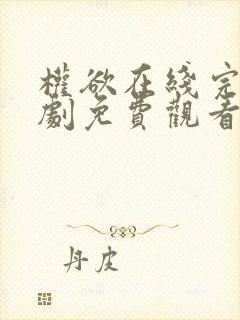 權欲在綫完
劇免費觀看
丹皮